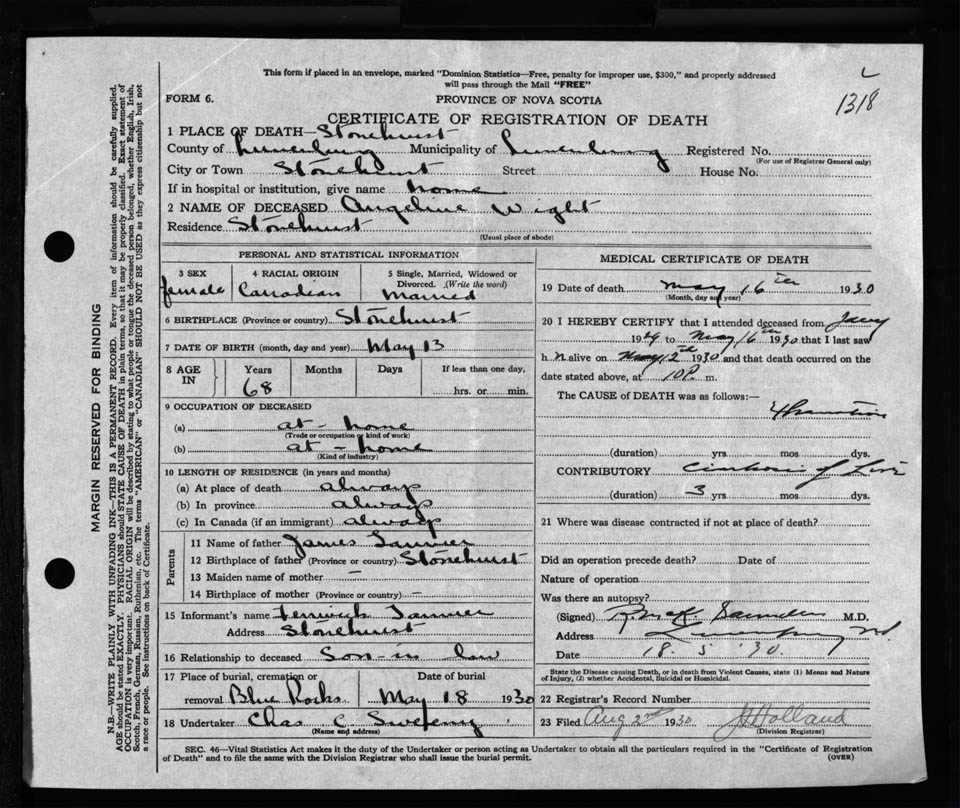 This form if placed in an envelope, marked "Dominion Statistics—Free, penalty for improper use, $300," and properly addressed
will pass through the Mail "FREE"
1318
FORM 6. PROVINCE OF NOVA SCOTIA
CERTIFICATE OF REGISTRATION OF DEATH
1 PLACE OF DEATH— Stonehurst
County of Lunenburg Municipality of Lunenburg Registered No.
(For use of Registrar General only)
City or Town Stonehurst Street House No.
If in hospital or institution, give name home
2 NAME OF DECEASED Angeline Wight
Residence Stonehurst
(Usual place of abode)
PERSONAL AND STATISTICAL INFORMATION
3 SEX 4 RACIAL ORIGIN 5 Single, Married, Widowed or
Divorced. (Write the word)
female Canadian Married
6 BIRTHPLACE (Province or country) Stonehurst
7 DATE OF BIRTH (month, day and year) May 13
8 AGE IN Years Months Days If less than one day,
68 hrs. or min.
9 OCCUPATION OF DECEASED
(a) at - home
(Trade or occupation or kind of work)
(b) at - home
(Kind of industry)
10 LENGTH OF RESIDENCE (in years and months)
(a) At place of death always
(b) In province always
(c) In Canada (if an immigrant) always
Parents
11 Name of father James Tanner
12 Birthplace of father (Province or country) Stonehurst
13 Maiden name of mother —
14 Birthplace of mother (Province or country) —
15 Informant's name Tanner
Address Stonehurst
16 Relationship to deceased Son-in law
17 Place of burial, cremation or Date of burial
removal Blue Rocks May 18 1930
18 Undertaker Chas C Sweeny
(Name and address)
MEDICAL CERTIFICATE OF DEATH
19 Date of death May 16th 1930
(Month, day and year)
20 I HEREBY CERTIFY that I attended deceased from Jany
1929 to May 16th 1930 that I last saw
h alive on May 12th 1930 and that death occurred on the
date stated above, at 10 P. m.
The CAUSE of DEATH was as follows:—
(duration) yrs mos dys.
CONTRIBUTORY Cirrhosis of Liver
(duration) 3 yrs mos dys.
21 Where was disease contracted if not at place of death?
Did an operation precede death? Date of
Nature of operation
Was there an autopsy?
(Signed) Saunders M.D.
Address Lunenburg
Date 18. 5. 30.
State the Disease causing Death, or in death from Violent Causes, state (1) Means and Nature
of Injury, (2) whether Accidental, Suicidal or Homicidal.
22 Registrar's Record Number
23 Filed Aug 2nd 1930 Holland
(Division Registrar)
SEC. 46—Vital Statistics Act makes it the duty of the Undertaker or person acting as Undertaker to obtain all the particulars required in the "Certificate of Registration
of Death" and to file the same with the Division Registrar who shall issue the burial permit. (OVER)
MARGIN RESERVED FOR BINDING
N.B.—WRITE PLAINLY WITH UNFADING INK—THIS IS A PERMANENT RECORD. Every item of information should be carefully supplied.
AGE should be stated EXACTLY. PHYSICIANS should STATE CAUSE OF DEATH in plain terms, so that it may be properly classified. Exact statement of
OCCUPATION is very important. RACIAL ORIGIN will be described by stating to what people or tongue the deceased person belonged, whether English, Irish,
Scotch, French, German, Russian, Ruthenian, etc. The terms "AMERICAN" or "CANADIAN" SHOULD NOT BE USED as they express citizenship but not
a race or people. See instructions on back of Certificate.